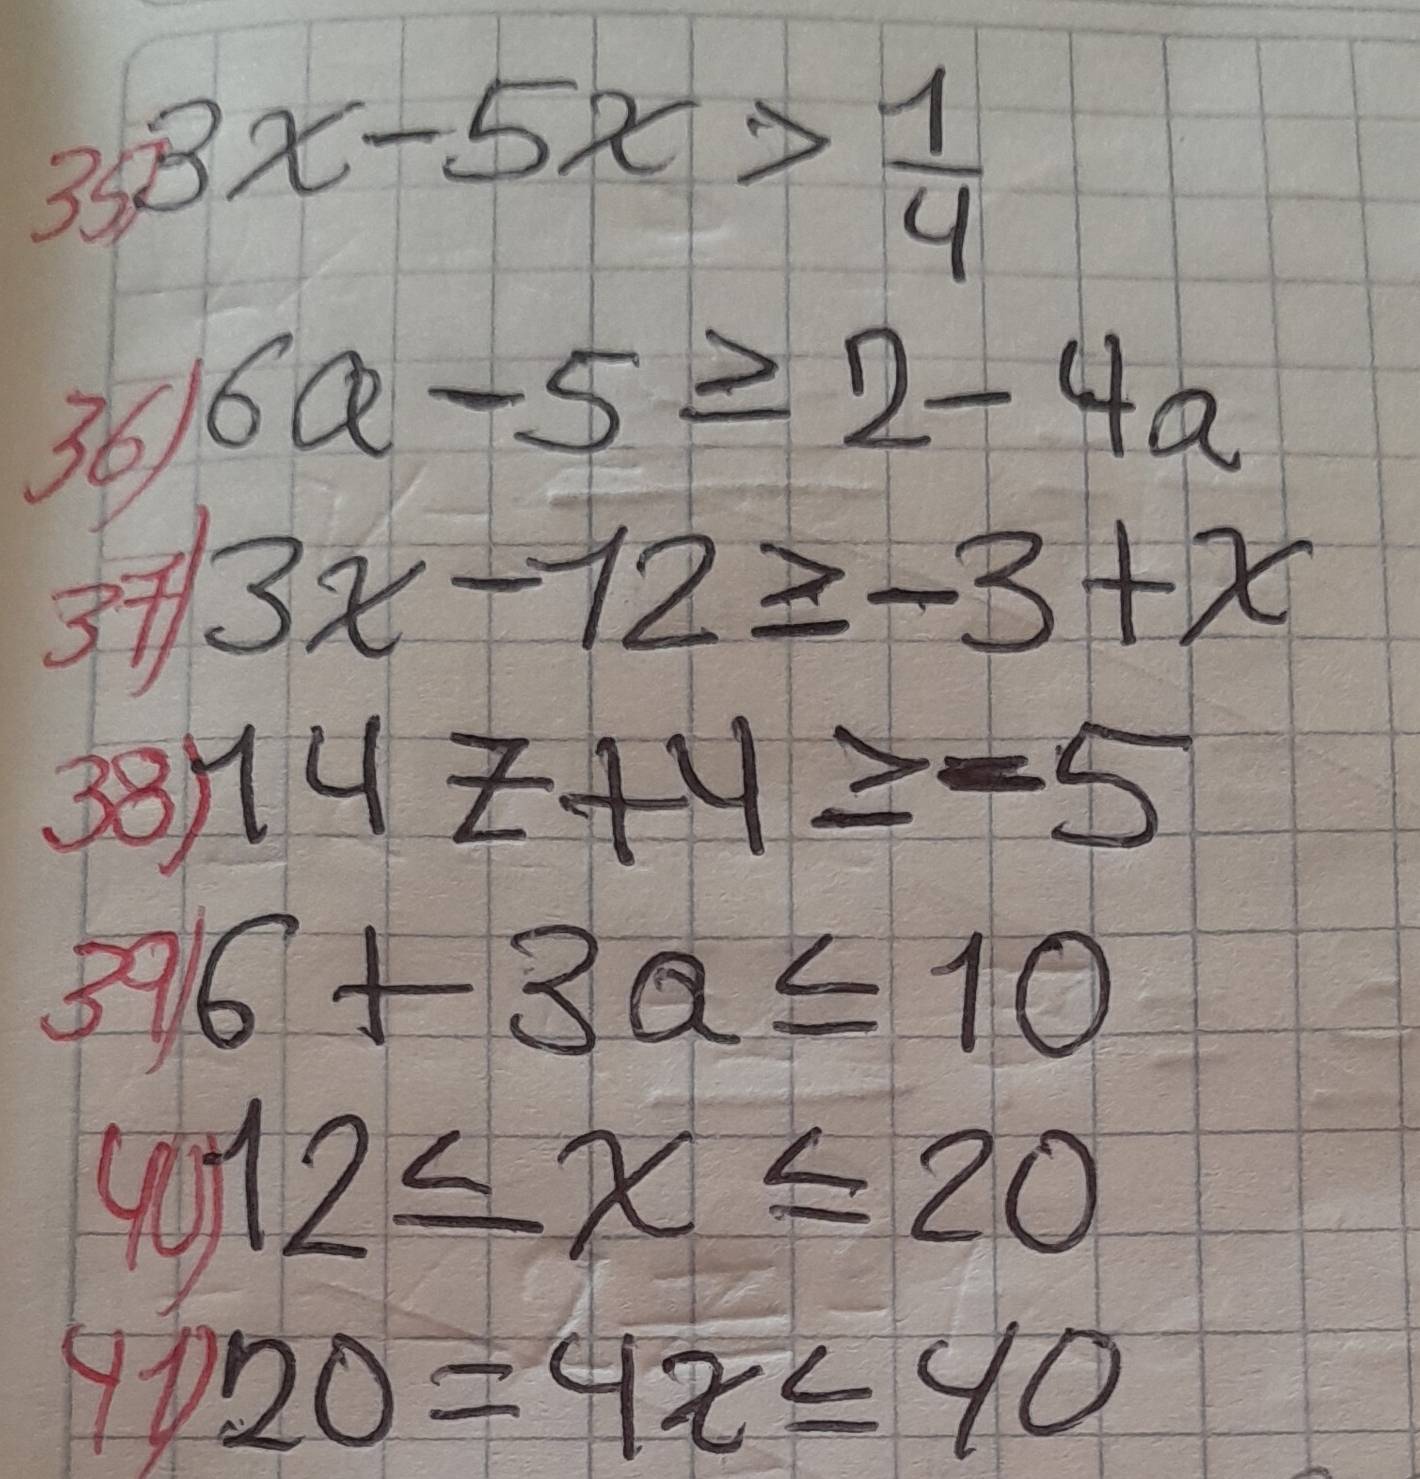 35) 3x - 5x > 1/4
36) 6a - 5 ≥ 2 - 4a
37) 3x - 12 ≥ -3 + x
38) 14z + 4 ≥ -5
39) 6 + 3a ≤ 10
40) 12 ≤ x ≤ 20
41) 20 = 4x ≤ 40